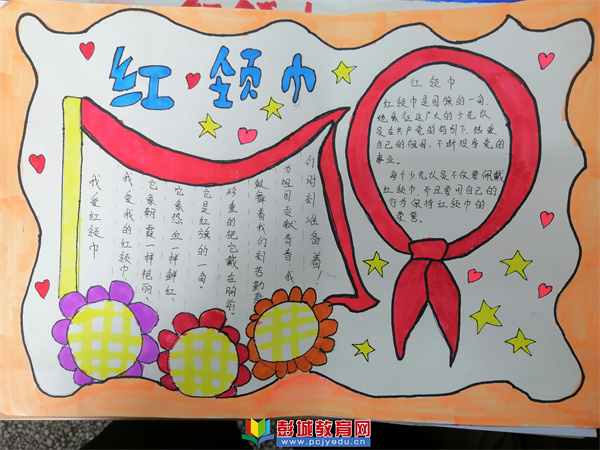 红领巾
红领巾
红领巾是国旗的一角,
它象征这广大的少先队
是在共产党的引引下,热爱
自己的祖国,不断投身党的
事业。
每个少先队是不仅要佩戴
红领巾,并且要用自己的
行为保持红领巾的
荣誉。
我爱红领巾
我爱我的红领巾,
它象朝霞一样艳丽、
它象热血一样鲜红、
它是红旗的一角。
珍重的把它戴在胸前,
鼓舞着我们刻苦勤奋
为祖国贡献青春,我
们时刻准备着!
彭城教育网
www.pcjyedu.cn